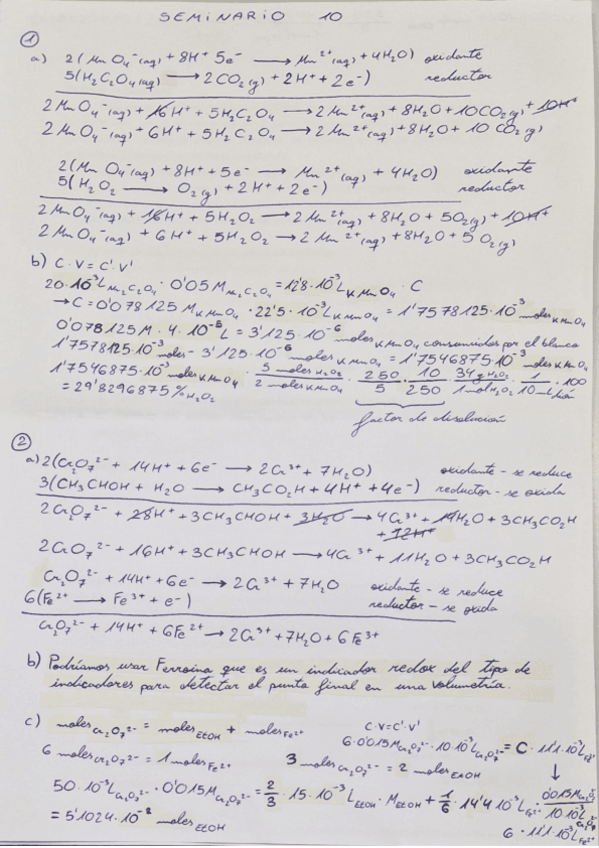 SEMINARIO 10
①
a) 2(MnO₄⁻(aq) + 8H⁺ 5e⁻ → Mn²⁺(aq) + 4H₂O) oxidante
5(H₂C₂O₄(aq) → 2CO₂(g) + 2H⁺ + 2e⁻) reductor
2MnO₄⁻(aq) + 16H⁺ + 5H₂C₂O₄ → 2Mn²⁺(aq) + 8H₂O + 10CO₂(g) + 10H⁺
2MnO₄⁻(aq) + 6H⁺ + 5H₂C₂O₄ → 2Mn²⁺(aq) + 8H₂O + 10CO₂(g)
2(MnO₄⁻(aq) + 8H⁺ + 5e⁻ → Mn²⁺(aq) + 4H₂O) oxidante
5(H₂O₂ → O₂(g) + 2H⁺ + 2e⁻) reductor
2MnO₄⁻(aq) + 16H⁺ + 5H₂O₂ → 2Mn²⁺(aq) + 8H₂O + 5O₂(g) + 10H⁺
2MnO₄⁻(aq) + 6H⁺ + 5H₂O₂ → 2Mn²⁺(aq) + 8H₂O + 5O₂(g)
b) C·V = C'·V'
20·10⁻³ L · 0'05 M = 12'8·10⁻³ L KMnO₄ · C
→ C = 0'078125 M KMnO₄ · 22'5·10⁻³ L KMnO₄ = 1'7578125·10⁻³ moles KMnO₄
0'078125 M · 4·10⁻⁵ L = 3'125·10⁻⁶ moles KMnO₄ consumidos por el blanco
1'7578125·10⁻³ moles - 3'125·10⁻⁶ moles KMnO₄ = 1'7546875·10⁻³ moles KMnO₄
1'7546875·10⁻³ moles KMnO₄ · 5 moles H₂O₂/2 moles KMnO₄ · 250/5 · 10/250 · 34g H₂O₂/1 mol H₂O₂ · 1/10 · 100
= 29'8296875 % H₂O₂
factor de disolución
②
a) 2(Cr₂O₇²⁻ + 14H⁺ + 6e⁻ → 2Cr³⁺ + 7H₂O) oxidante - se reduce
3(CH₃CHOH + H₂O → CH₃CO₂H + 4H⁺ + 4e⁻) reductor - se oxida
2Cr₂O₇²⁻ + 28H⁺ + 3CH₃CHOH + 3H₂O → 4Cr³⁺ + 14H₂O + 3CH₃CO₂H
+ 12H⁺
2Cr₂O₇²⁻ + 16H⁺ + 3CH₃CHOH → 4Cr³⁺ + 11H₂O + 3CH₃CO₂H
Cr₂O₇²⁻ + 14H⁺ + 6e⁻ → 2Cr³⁺ + 7H₂O oxidante - se reduce
6(Fe²⁺ → Fe³⁺ + e⁻) reductor - se oxida
Cr₂O₇²⁻ + 14H⁺ + 6Fe²⁺ → 2Cr³⁺ + 7H₂O + 6Fe³⁺
b) Podríamos usar Ferroína que es un indicador redox del tipo de
indicadores para detectar el punto final en una volumetría.
c) moles Cr₂O₇²⁻ = moles EtOH + moles Fe²⁺ C·V=C'·V'
6·0'015M Cr₂O₇²⁻ · 10·10⁻³ L Cr₂O₇²⁻ = C · 11'1·10⁻³ L Fe²⁺
6 moles Cr₂O₇²⁻ = 1 moles Fe²⁺ 3 moles Cr₂O₇²⁻ = 2 moles EtOH ↓
50·10⁻³ L Cr₂O₇²⁻ · 0'015M Cr₂O₇²⁻ = 2/3 · 15·10⁻³ L EtOH · M EtOH + 1/6 · 14'4·10⁻³ L Fe²⁺ · 0'015M
= 5'1024·10⁻² moles EtOH
6 · 11'1·10⁻³ L Fe²⁺